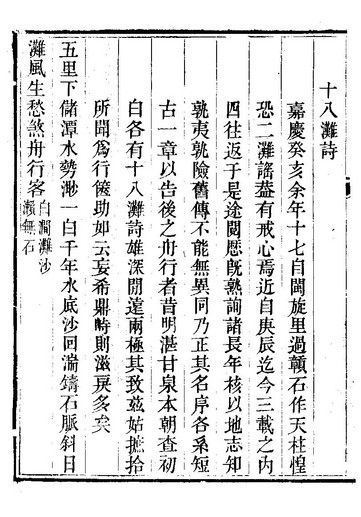 十八灘詩
嘉慶癸亥余年十七自閩旋里過贛石作天柱惶
恐二灘謠葢有戒心焉近自庚辰迄今三載之內
四往返于是途閱歷旣熟詢諸長年核以地志知
孰夷孰險舊傳不能無異同乃正其名序各系短
古一章以告後之舟行者昔明湛甘泉本朝查初
白各有十八灘詩雄深閒遠兩極其致茲姑摭拾
所聞爲行篋助如云妄希鼎峙則滋戾多矣
五里下儲潭水勢渺一白千年水底沙回湍鑄石脈斜日
灘風生愁煞舟行客白澗灘沙
瀨無石